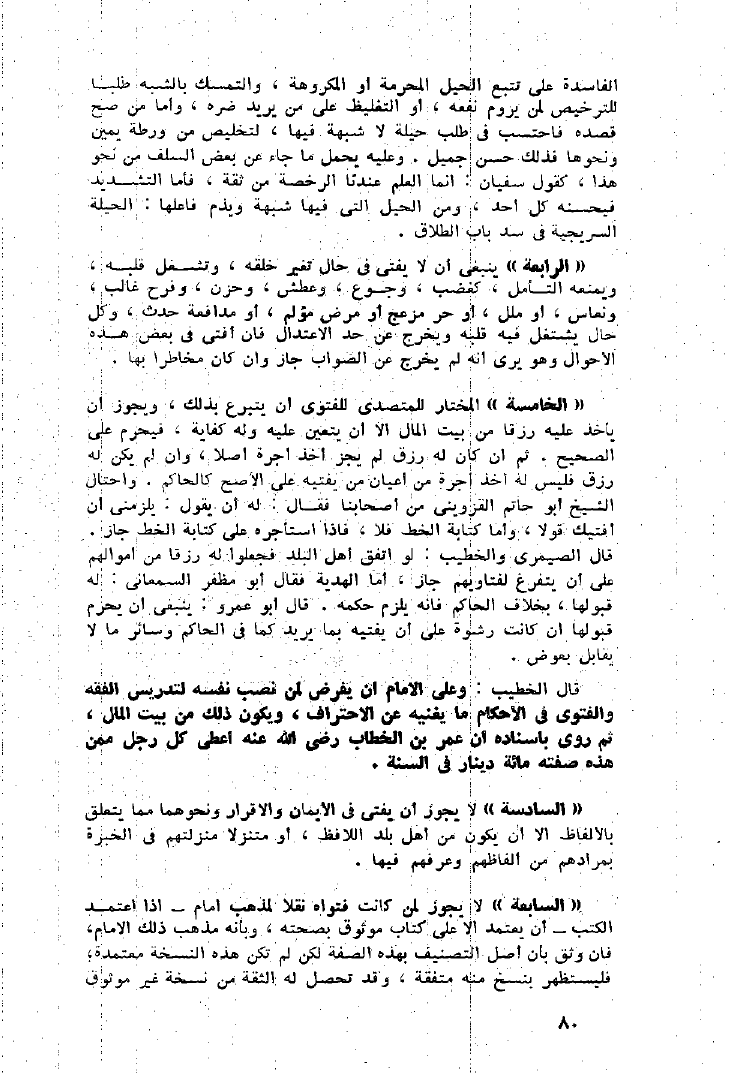 الفاسدة على تتبع الحيل المحرمة أو المكروهة ، والتمسك بالشبه طلبا
للترخيص لمن يروم نفعه ، أو التغليظ على من يريد ضره ، وأما من صح
قصده فاحتسب فى طلب حيلة لا شبهة فيها ، لتخليص من ورطة يمين
ونحوها فذلك حسن جميل . وعليه يحمل ما جاء عن بعض السلف من نحو
هذا ، كقول سفيان : انما العلم عندنا الرخصة من ثقة ، فأما التشديد
فيحسنه كل أحد ، ومن الحيل التى فيها شبهة ويذم فاعلها : الحيلة
السريجية فى سد باب الطلاق .
« الرابعة » ينبغى أن لا يفتى فى حال تغير خلقه ، وتشغل قلبه ،
ويمنعه التأمل ، كغضب ، وجوع ، وعطش ، وحزن ، وفرح غالب ،
ونعاس ، أو ملل ، أو حر مزعج أو مرض مؤلم ، أو مدافعة حدث ، وكل
حال يشتغل فيه قلبه ويخرج عن حد الاعتدال فان أفتى فى بعض هذه
الأحوال وهو يرى أنه لم يخرج عن الصواب جاز وان كان مخاطرا بها .
« الخامسة » المختار للمتصدى للفتوى أن يتبرع بذلك ، ويجوز أن
يأخذ عليه رزقا من بيت المال الا أن يتعين عليه وله كفاية ، فيحرم على
الصحيح . ثم ان كان له رزق لم يجز أخذ أجرة أصلا ، وان لم يكن له
رزق فليس له أخذ أجرة من أعيان من يفتيه على الأصح كالحاكم . واحتال
الشيخ أبو حاتم القزوينى من أصحابنا فقال : له أن يقول : يلزمنى أن
أفتيك قولا ، وأما كتابة الخط فلا ، فاذا استأجره على كتابة الخط جاز .
قال الصيمرى والخطيب : لو اتفق أهل البلد فجعلوا له رزقا من أموالهم
على أن يتفرغ لفتاويهم جاز ، أما الهدية فقال أبو مظفر السمعانى : له
قبولها ، بخلاف الحاكم فانه يلزم حكمه . قال أبو عمرو : ينبغى أن يحرم
قبولها ان كانت رشوة على أن يفتيه بما يريد كما فى الحاكم وسائر ما لا
يقابل بعوض .
قال الخطيب : وعلى الامام أن يفرض لمن نصب نفسه لتدريس الفقه
والفتوى فى الأحكام ما يغنيه عن الاحتراف ، ويكون ذلك من بيت المال ،
ثم روى باسناده أن عمر بن الخطاب رضى الله عنه أعطى كل رجل ممن
هذه صفته مائة دينار فى السنة .
« السادسة » لا يجوز أن يفتى فى الأيمان والاقرار ونحوهما مما يتعلق
بالألفاظ الا أن يكون من أهل بلد اللافظ ، أو متنزلا منزلتهم فى الخبرة
بمرادهم من ألفاظهم وعرفهم فيها .
« السابعة » لا يجوز لمن كانت فتواه نقلا لمذهب امام ــ اذا اعتمد
الكتب ــ أن يعتمد الا على كتاب موثوق بصحته ، وبأنه مذهب ذلك الامام،
فان وثق بأن أصل التصنيف بهذه الصفة لكن لم تكن هذه النسخة معتمدة،
فليستظهر بنسخ منه متفقة ، وقد تحصل له الثقة من نسخة غير موثوق
٨٠